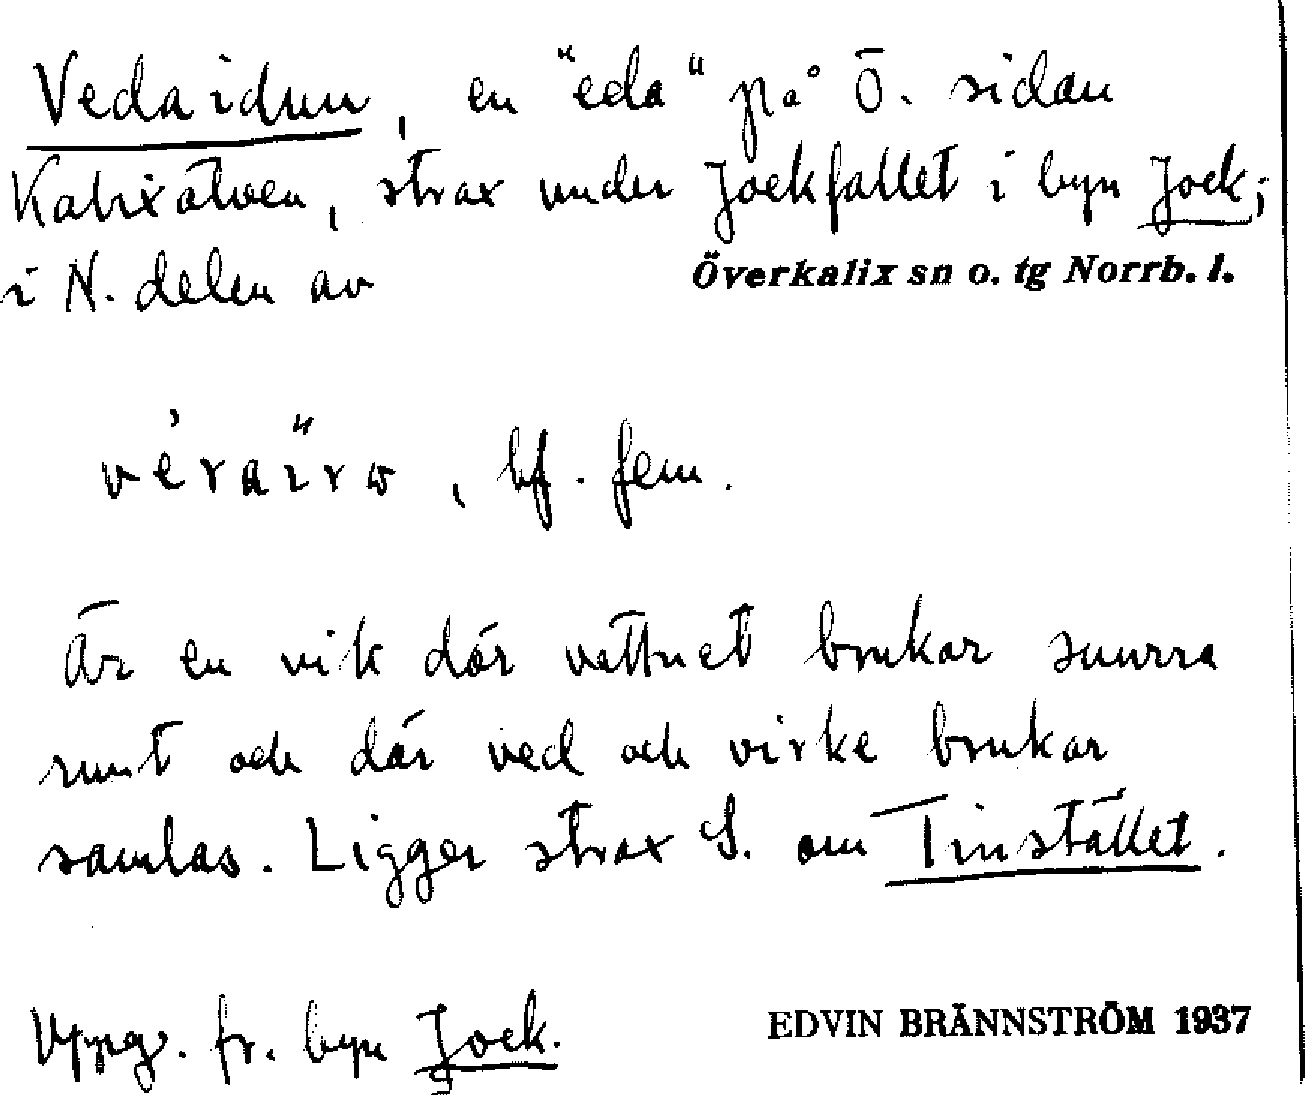 Vedaidun, en "eda" på Ö. sidan
Kalixälven, strax under Jockfallet i byn Jock;
i N. delen av Överkalix sn o. tg Norrb. l.
bf. fem.
Är en vik där vattnet brukar snurra
runt och där ved och virke brukar
samlas. Ligger strax S. om Tinstället.
Uppg. fr. byn Jock. EDVIN BRÄNNSTRÖM 1937